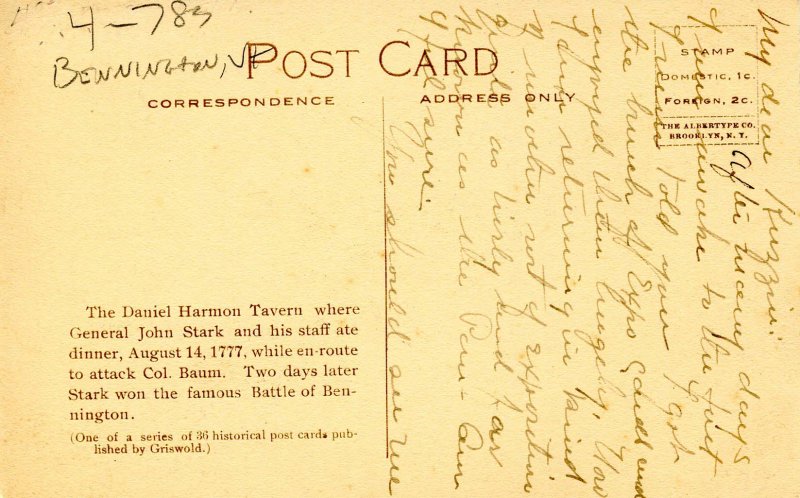 4-783
BENNINGTON, VT
POST CARD
CORRESPONDENCE
ADDRESS ONLY
STAMP
DOMESTIC, 1c.
FOREIGN, 2c.
THE ALBERTYPE CO.
BROOKLYN, N. Y.
The Daniel Harmon Tavern where
General John Stark and his staff ate
dinner, August 14, 1777, while en-route
to attack Col. Baum. Two days later
Stark won the famous Battle of Ben-
nington.
(One of a series of 36 historical post cards pub-
lished by Griswold.)
My dear
After many days
I awake to the fact
I never told you I got
the bunch of Expo cards and
enjoyed them hugely. You
I am returning in kind
another sort of exposition
as and far
known as the Pan-Am
of
You should see me